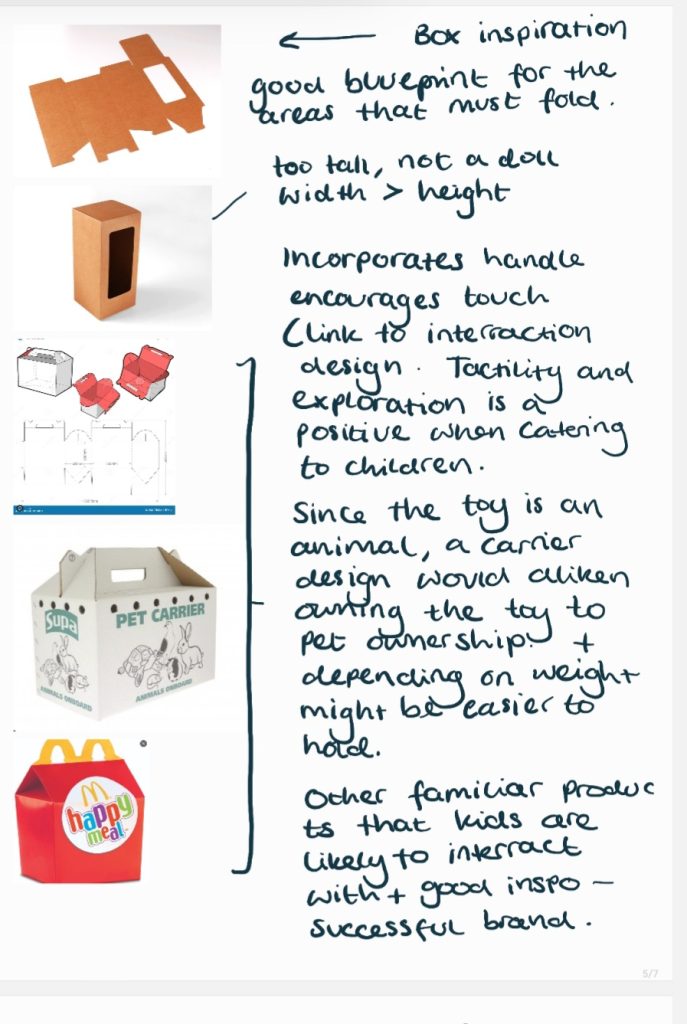 ← Box inspiration
good blueprint for the
areas that must fold.
too tall, not a doll
width > height
Incorporates handle
encourages touch
(link to interraction
design. Tactility and
exploration is a
positive when catering
to children.
Supa
PET CARRIER
ANIMALS ONBOARD
ANIMALS ONBOARD
Since the toy is an
animal, a carrier
design would aliken
owning the toy to
pet ownership. +
depending on weight
might be easier to
hold.
happy
meal
Other familiar produc
ts that kids are
likely to interract
with + good inspo –
successful brand.
5/7